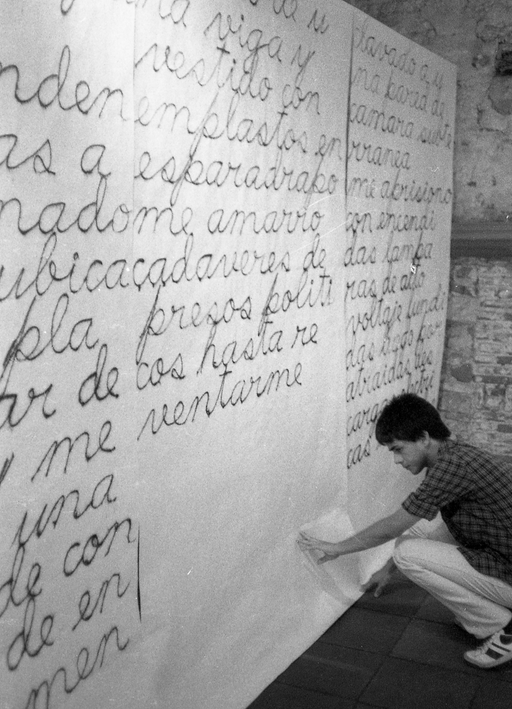 nden
as a
nado
ubica
pla
ar de
y me
una
de con
de en
men
a u
na viga y
vestido con
emplastos en
esparadrapo
me amarro
cadaveres de
presos politi
cos hasta re
ventarme
clavado a u
na pared de
camara subte
rranea
me aprisiono
con encendi
das lampa
ras de alto
voltaje fundi
das
atraidas
cargas
cas